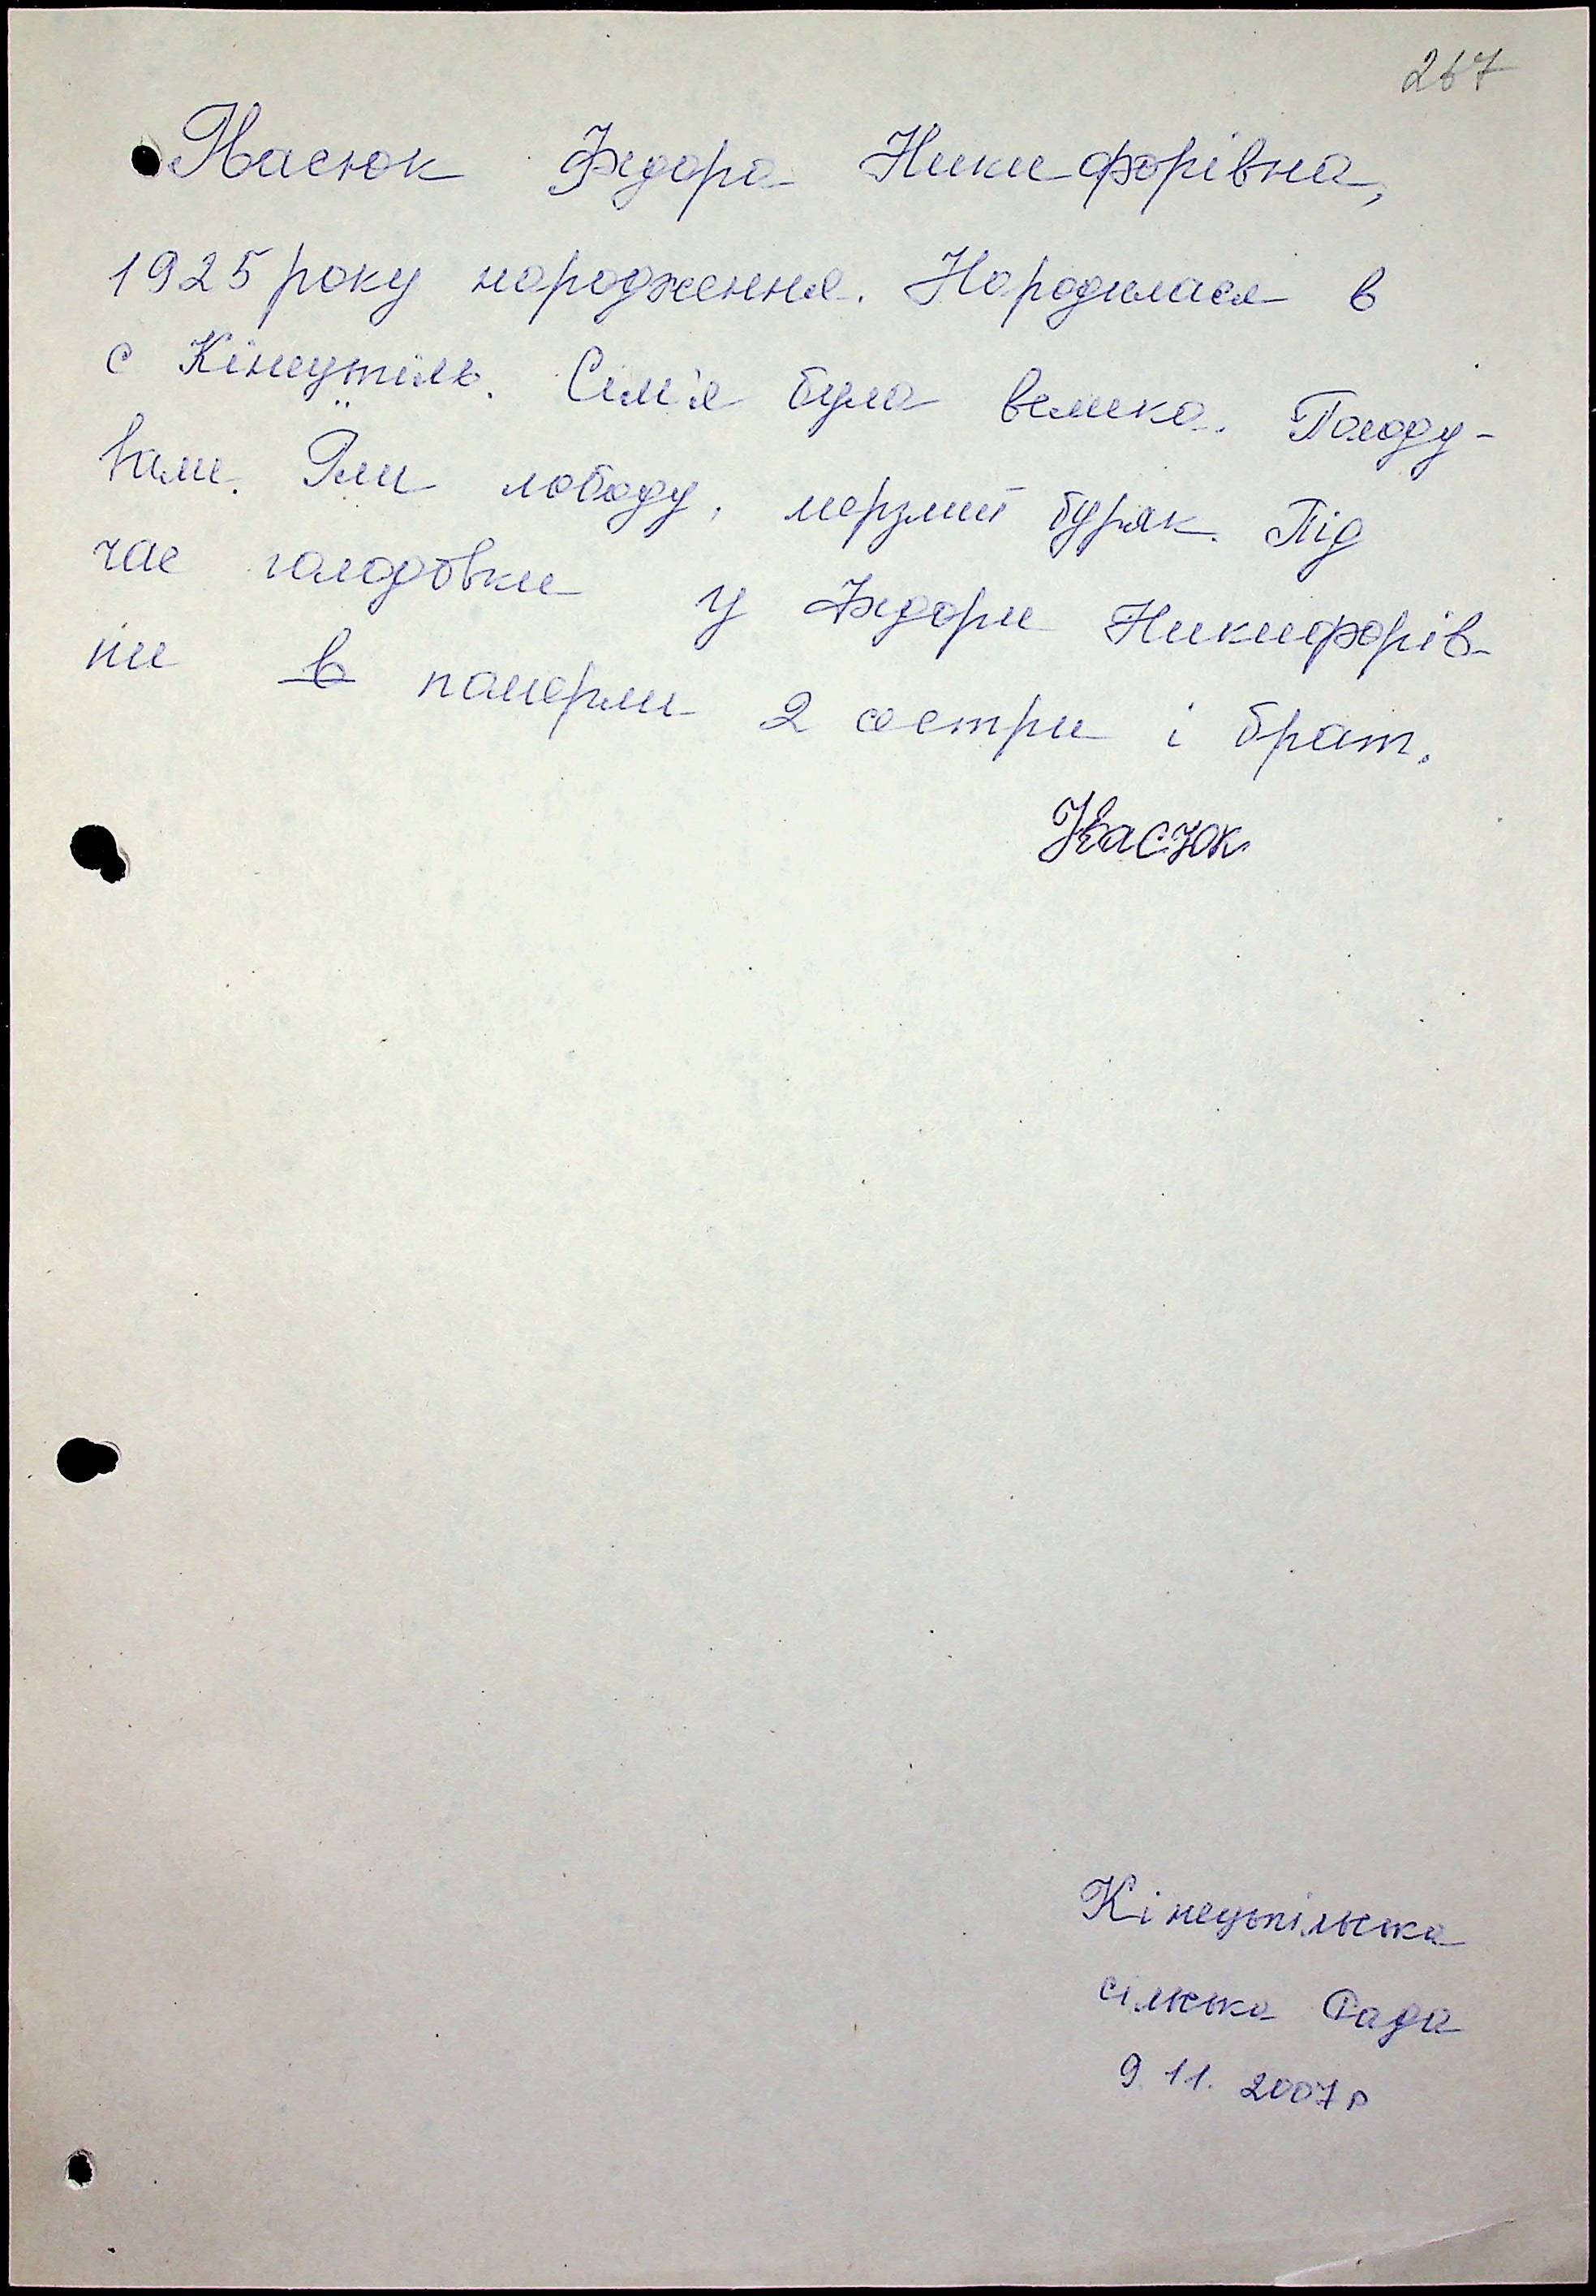 267
Івасюк Федора Никифорівна,
1925 року народження. Народилася в
с Кінецпіль. Сім'я була велика. Голоду-
вали. Їли лободу, мерзлий буряк. Під
час голодовки у Федори Никифорів-
ни в померли 2 сестри і брат.
Івасюк
Кінецьпільська
сільська Рада
9. 11. 2007 р